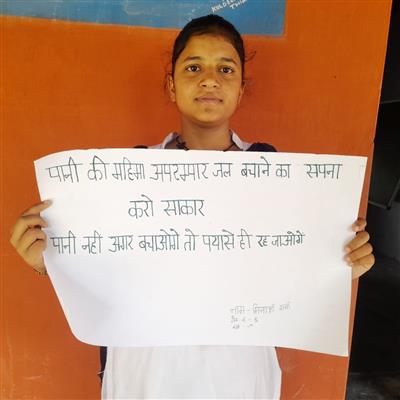 पानी की महिमा अपरम्पार जल बचाने का सपना
करो साकार
पानी नही अगर बचाओगे तो पयासे ही रह जाओगे
नाम -